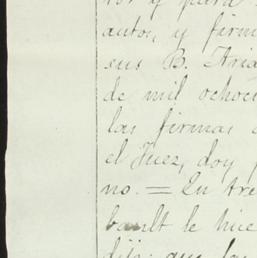 ros y para
autor, y firm
ens B. Aria
de mil ochoci
las firmas
el Juez, doy
no. = En Are
bault le hice
dijo: que los